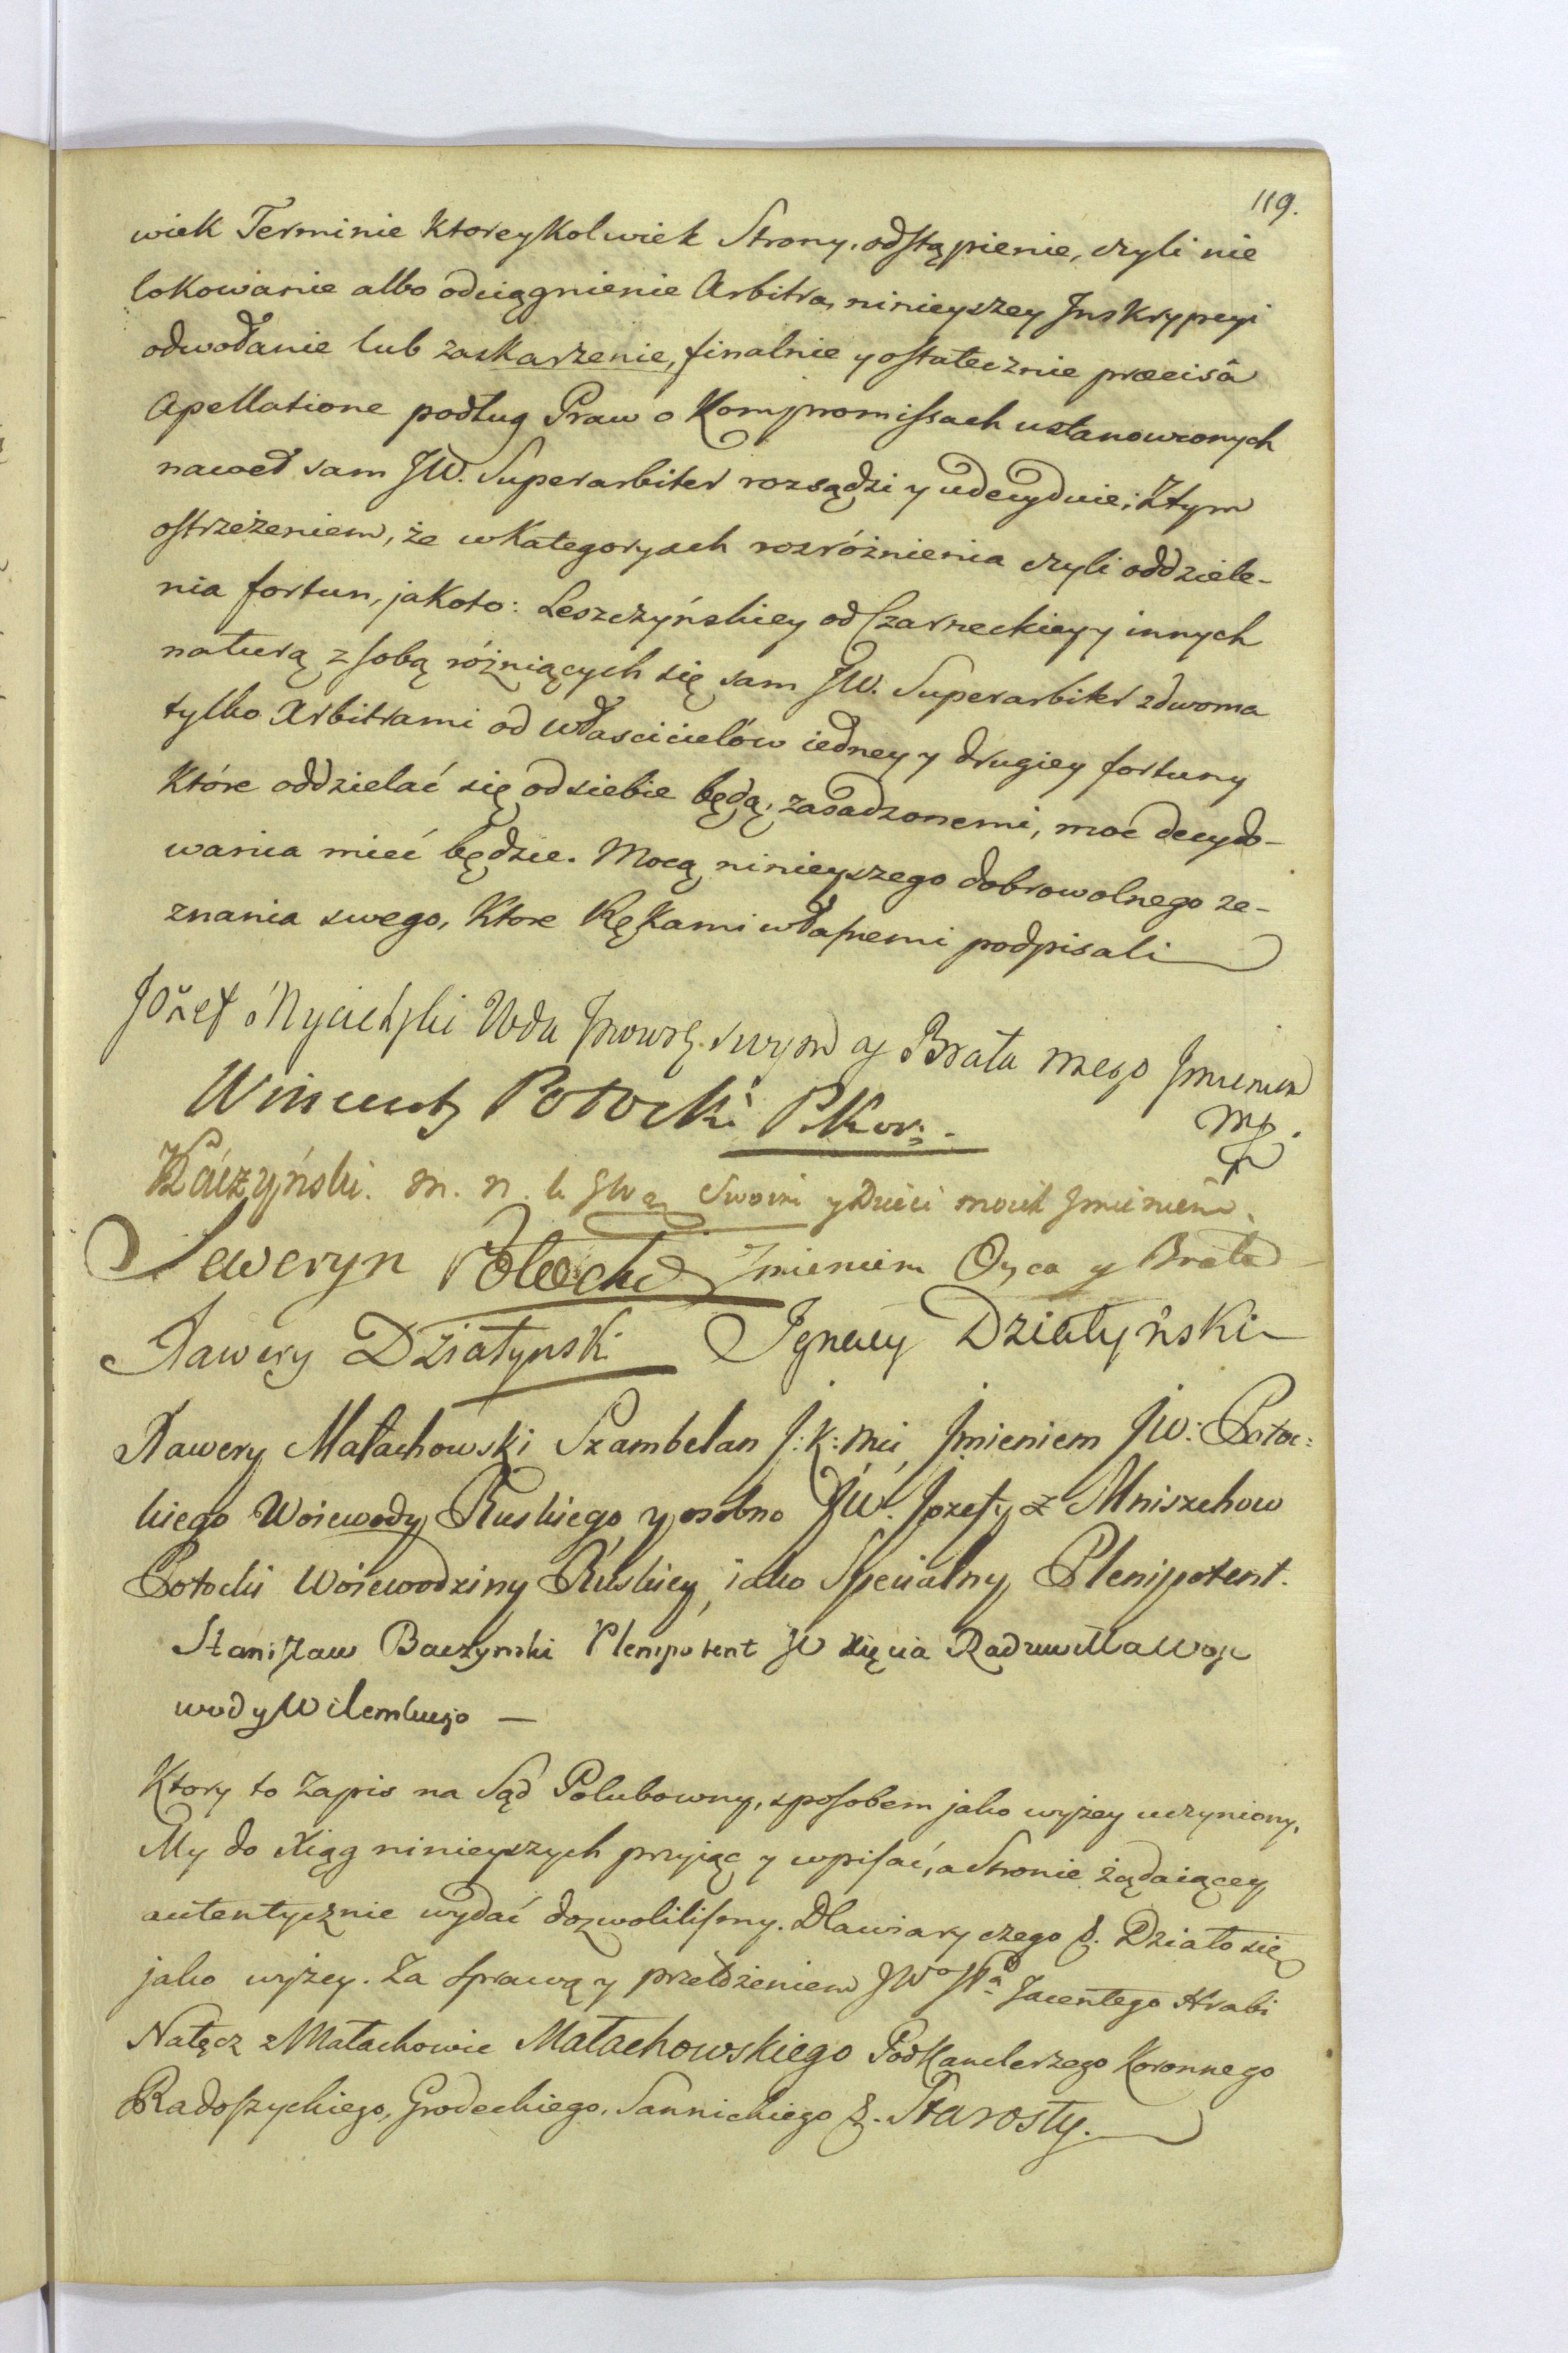 119.
wiek Terminie ktoreykolwiek Strony, odstąpienie, czyli nie
lokowanie albo odciągnienie Arbitra, ninieyszey Jnskrypcyi
odwołanie lub zaskarzenie, finalnie y ostatecznie præcisâ
Apellatione podług Praw o Kompromissach ustanowionych
nawet sam JW. Superarbiter rozsądzi y udecyduie; Ztym
ostrzeżeniem, że w kategoryach rozróżnienia czyli oddziele-
nia fortun, jakoto: Leszczyńskiey od Czarneckiey y innych
naturą z sobą różniących się sam JW. Superarbiter z dwoma
tylko Arbitrami od włascicielów iedney y drugiey fortuny
które oddzielać się od siebie będą, zasadzonemi, moc decydo-
wania mieć będzie. Mocą ninieyszego dobrowolnego ze-
znania swego, ktore Rękami własnemi podpisali
Jozef Mycielski Wda Jnowr. swym y Brata mego Jmieniem
mp.
Wincenty Potocki P. Kor:.
Raczyński. m. n. swoim y Dzieci moich Jmieniem.
Seweryn Potocki Jmieniem Oyca y Brata
Xawery Działynski Jgnacy Działyński
Xawery Małachowski Szambelan J: K: Mci, Jmieniem JW: Potoc:
kiego Woiewody Ruskiego y osobno JW. Jozefy z Mniszchow
Potocki Woiewodziny Ruskiey, iako Specialny Plenipotent.
Stanisław Baczynski Plenipotent JO Xięcia Radziwiłła Woje
wody Wilenskiego —
Ktory to Zapis na Sąd Polubowny, sposobem jako wyżey uczyniony,
My do Xiąg ninieyszych przyiąć y wpisać, a Stronie żądaiącey
autentycznie wydać dozwolilismy. Dla wiary czego &. Działo się
jako wyżey. Za sprawą y przełożeniem JWo JPa Jacentego Hrabi
Nałęcz z Małachowic Małachowskiego Podkanclerzego Koronnego
Radoszyckiego, Grodeckiego, Sannickiego &. Starosty.